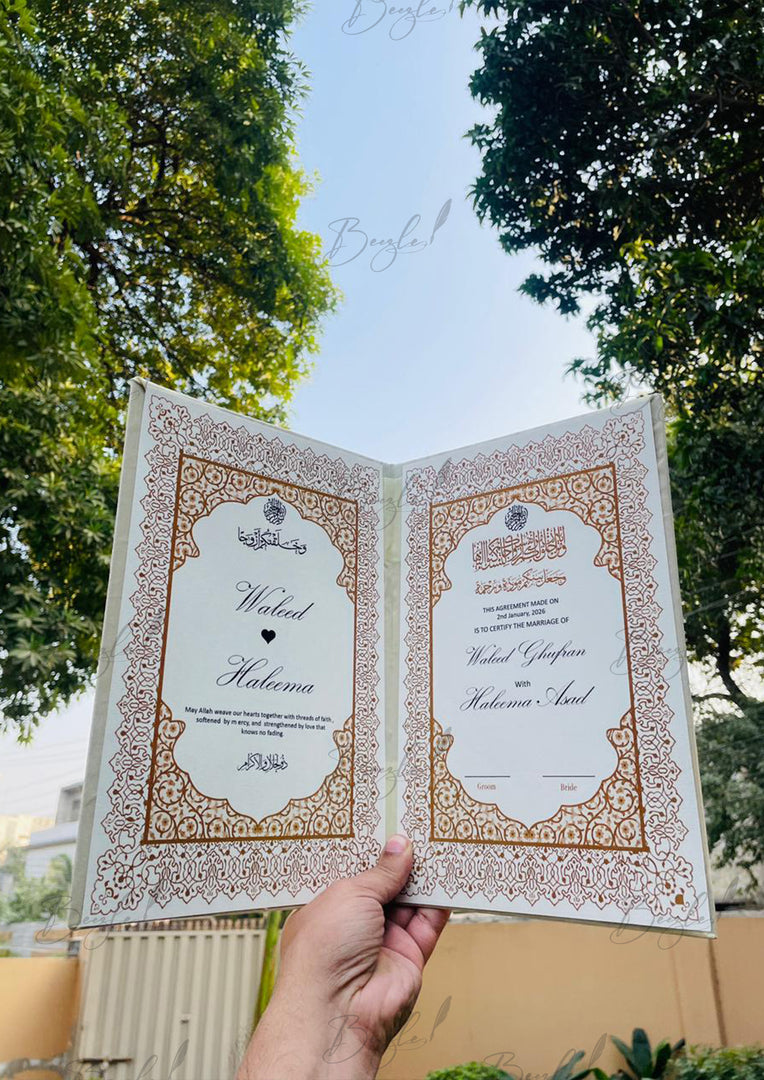 Beezle
Beezle
وَخَلَقْنَاكُمْ أَزْوَاجًا
Waleed
Haleema
May Allah weave our hearts together with threads of faith,
softened by m ercy, and strengthened by love that
knows no fading.
ذوالجلال والاکرام
THIS AGREEMENT MADE ON
2nd January, 2026
IS TO CERTIFY THE MARRIAGE OF
Waleed Ghufran
With
Haleema Asad
Groom Bride
Beezle